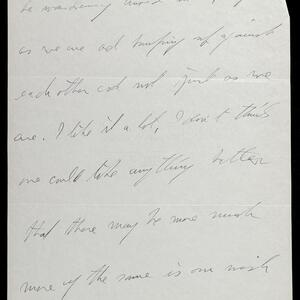 be wandering around
as we are and bumping up against
each other and not just as we
are. I like it a lot, I don't think
one could like anything better
that there may be more much
more of the same is our wish